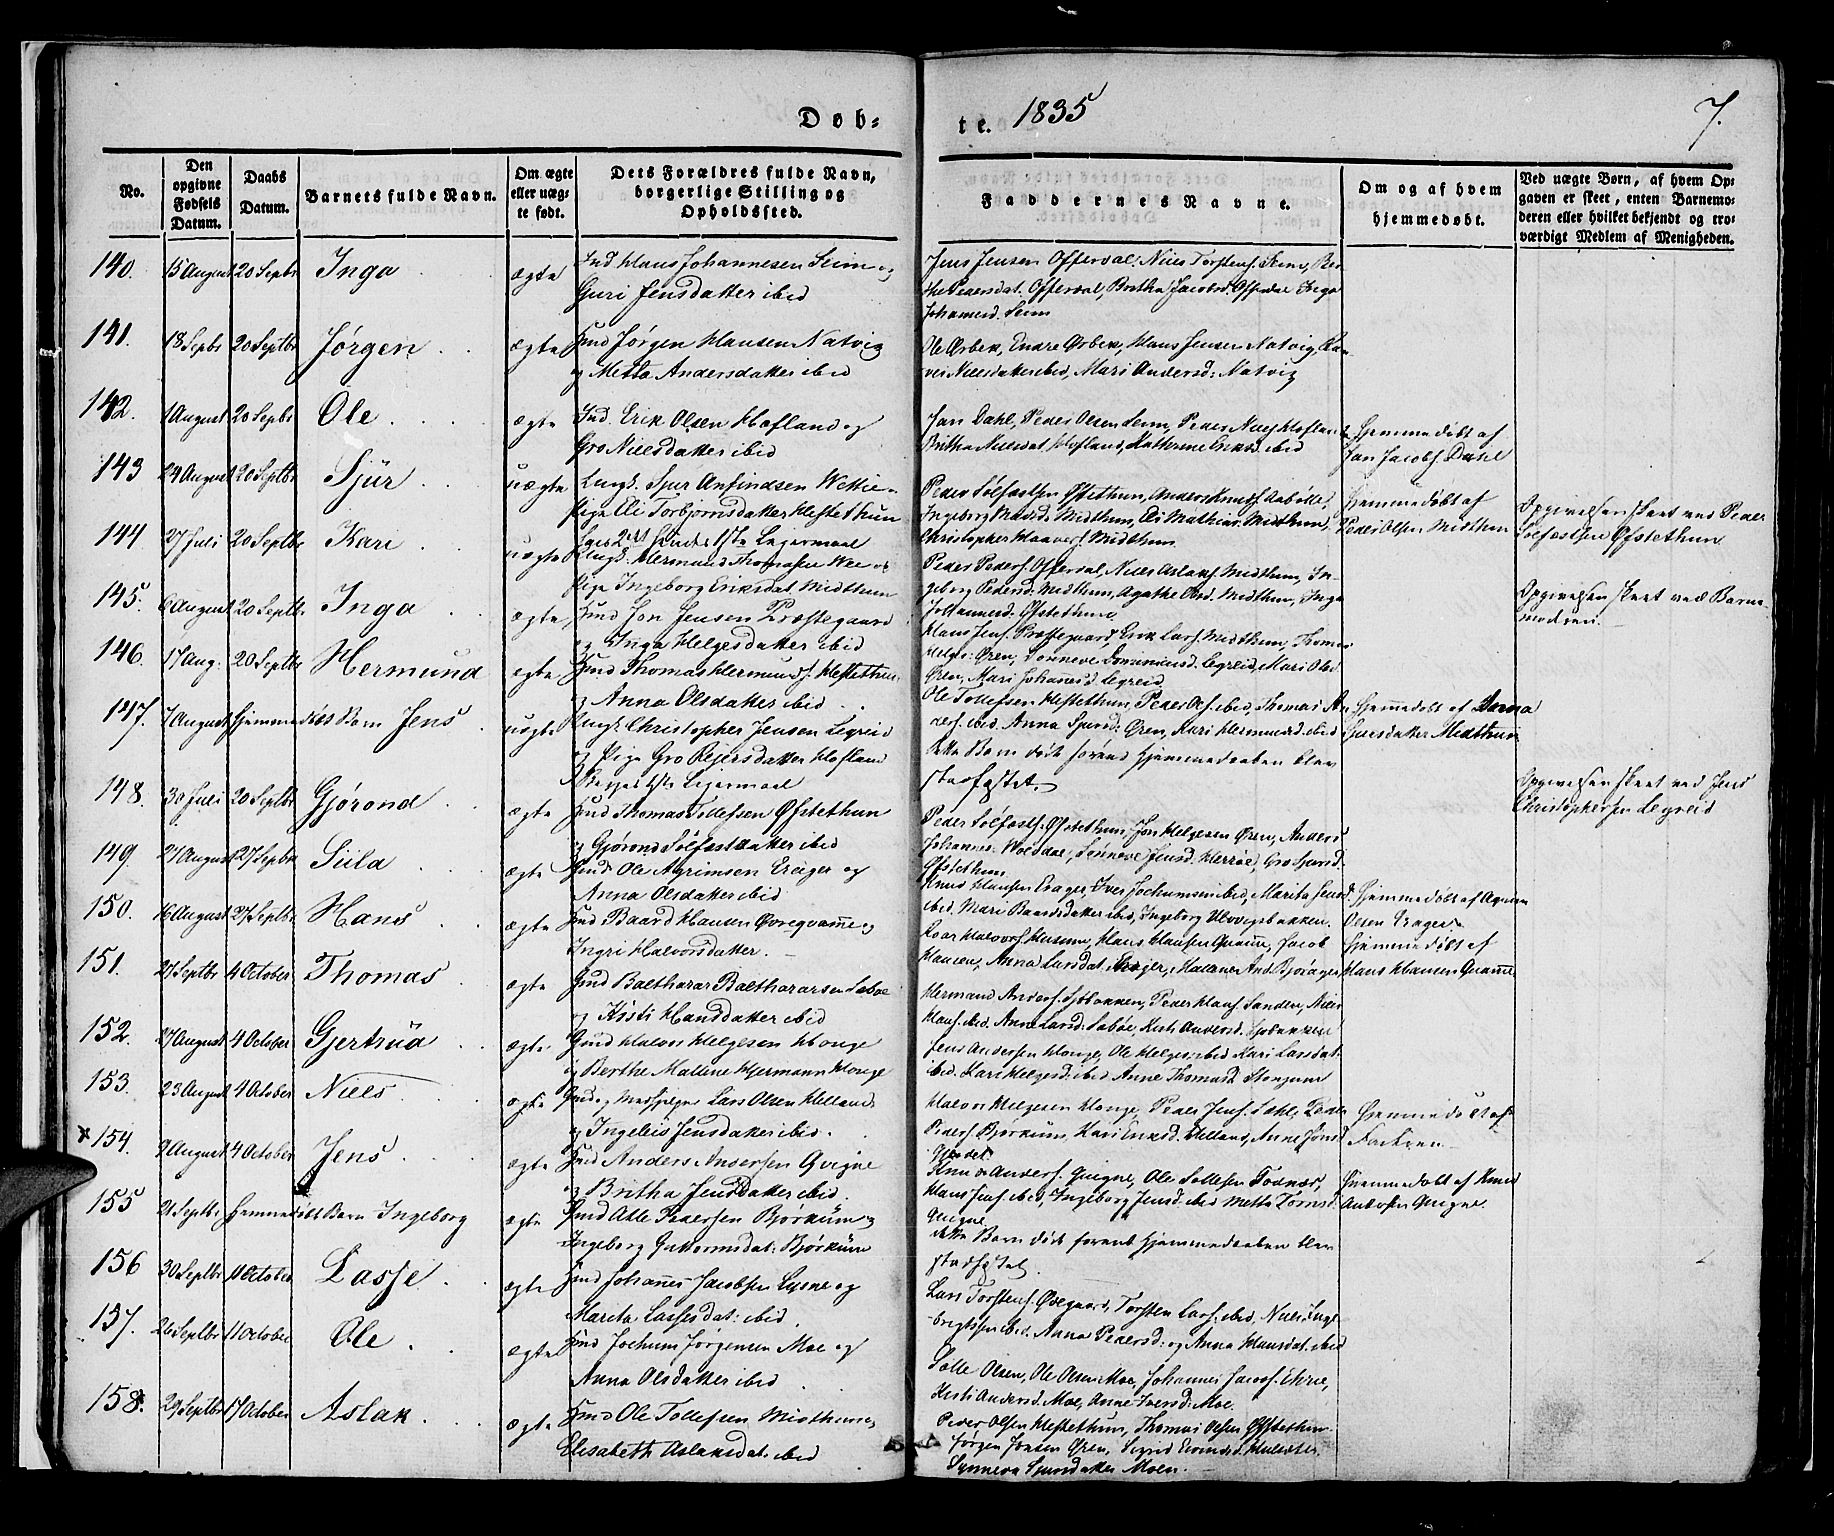 Døb-
te. 1835
7.
No.
Den opgivne Fødsels Datum.
Daabs Datum.
Barnets fulde Navn.
Om ægte eller uægte født.
Dets Forældres fulde Navn, borgerlige Stilling og Opholdssted.
Faddernes Navne.
Om og af hvem hjemmedøbt.
Ved uægte Børn, af hvem Opgaven er skeet, enten Barnemoderen eller hvilket bekjendt og troværdigt Medlem af Menigheden.
140. 15 August 20 Septbr Inga ægte Hans Johannesen Seim og
Guri Jensdatter ibid
Jens Jensen Offerdal, Niels Torstens. Seim,
Pedersdat. Offerdal, Britha Jacobsd. Offerdal Inga
Johannesd. Seim
141. 18 Septbr 20 Septbr Jørgen ægte Jørgen Hansen Natvig
og Metta Andersdatter ibid
Ole Ørbek, Endre Ørbek, Hans Jensen Natvig,
Nielsdatter ibid, Mari Andersd: Natvig
142. 1 August 20 Septbr Ole ægte Erik Olsen Hofland og
Gro Nielsdatter ibid
Jan Dahl, Peder Olsen Seim, Peder Niels. Hofland
Britha Nielsdat. Hofland, Kathrine Eriksd. ibid
Hjemmedøbt af
Jan Jacobs. Dahl
143 24 August 20 Septbr Sjur uægte Ungk. Sjur Anfindsen Wettie
Pige Eli Torbjørnsdatter Hestethun
2det 1ste Leiermaal
Peder Sølfestsen Øfstethun, Anders Knuts.
Ingeborg Midthun, Eli Mathias. Midthun,
Christopher Midthun
Hjemmedøbt af
Peder Olsen Midthun
Opgivelsen skeet ved Peder
Sølfestsen Øfstethun
144 27 Juli 20 Septbr Kari uægte Ungk. Hermund Thomasen Wee og
Pige Ingeborg Eriksdat. Midthun
Peder Peders. Offerdal, Niels Aslaks. Midthun, In-
geborg Pedersd. Midthun, Agathe Olsd. Midthun, Inga
Johannesd. Øfstethun
Opgivelsen skeet ved Barne-
moderen.
145. 6 August 20 Septbr Inga ægte Jon Jensen Præstegaard
og Inga Helgesdatter ibid
Hans Jens. Præstegaard, Erik Lars. Midthun, Thomas
Helges. Øren, Sønneve Legreid, Mari Olsd
Øren, Mari Johannesd. Legreid
146. 17 Aug: 20 Septbr Hermund ægte Thomas Hermunds. Hestethun
og Anna Olsdatter ibid
Ole Tollefsen Hestethun, Peder Ols. ibid, Thomas An-
ders. ibid, Anna Sjursd: Øren, Kari Hermundsd. ibid
147. 7 August Hjemmedøbt Barn Jens uægte Ungk. Christopher Jensen Legreid
og Pige Gro Reiersdatter Hofland
Begge 1ste Leiermaal
dette Barn døde førend Hjemmedaaben blev
stadfæstet.
Hjemmedøbt af Anna
Sjursdatter Midthun
Opgivelsen skeet ved Jens
Christophersen Legreid
148. 30 Juli 20 Septbr Gjørond ægte Thomas Tollefsen Øfstethun
og Gjørond Sølfestdatter ibid
Peder Sølfests. Øfstethun, Jon Helgesen Øren, Anders
Johannes. Sønneve Jensd. Gro Sjursd.
Øfstethun
149. 24 August 27 Septbr Siila ægte Ole Agrimsen Erager og
Anna Olsdatter ibid
Knud Hansen Erager, Iver Jochumsen ibid, Marita Jensd.
ibid. Mari Baardsdatter ibid, Ingeborg
Hjemmedøbt af Agrim
Olsen Erager
150. 16 August 27 Septbr Hans ægte Baard Hansen Øvreqvamme og
Ingri Halvorsdatter.
Halvors. Hans Hansen Qvamme, Jacob
Hansen, Anna Larsdat. Erager,
Hjemmedøbt af
Hans Hansen Quamme
151. 27 Septbr 4 October Thomas ægte Balthazar Balthazarsen Sæbøe
og Kisti Hansdatter ibid
Hermund Anders. Sjøbakken, Peder Hans. Sanden, Niels
Hans. ibid. Anne Larsd. Sæbøe, Kisti Andersd. Sjøbakken
152. 27 August 4 October Gjertrud ægte Halvor Helgesen Houge
og Berthe Malene Hjermann Houge
Jens Andersen Houge, Ole Helges. ibid Kari Larsdat.
ibid. Kari Helgesd. ibid Anne Thomasd.
153. 23 August 4 October Niels ægte Lars Olsen Helland
og Ingeleis Jensdatter ibid.
Halvor Helgesen Houge, Peder Jens. Peder
Peders. Bjørkum, Kari Eriksd. Helland, Anne Jensd.
Hjemmedøbt af
154. 9 August 4 October Jens ægte Anders Andersen Qvigne
og Britha Jensdatter ibid.
Knud Anders. Quigne, Ole Tollefsen
Hans Jens. ibid, Ingeborg Jensd: ibid Metta
Quigne
Hjemmedøbt af Knud
Andersen Quigne.
155 21 Septbr Hjemmedøbt Barn Ingeborg ægte Atle Pedersen Bjørkum og
Ingeborg Guttormsdat: Bjørkum
dette Barn døde førend Hjemmedaaben blev
stadfæstet.
156 30 Septbr 11 October Lasse ægte Johannes Jacobsen Lysne og
Marita Lassesdat: ibid.
Lars Torstens. Øvregaard, Torsten Lars. ibid, Niels Inge-
brigtsen ibid. Anna Pedersd: og Anna Hansdat. ibid
157. 26 Septbr 11 October Ole ægte Jochum Jørgensen Moe og
Anna Olsdatter ibid
Tolle Olsen, Ole Olsen Moe, Johannes Jacobs.
Kisti Andersd. Moe, Anne Iversd: Moe.
158. 29 Septbr 17 October Aslak ægte Ole Tollefsen Midthun og
Elisabeth Aslaksdat: ibid
Peder Olsen Hestethun, Thomas Olsen Øfstethun
Jørgen Jonsen Øren, Sigrid
Synneva Sjursdatter Moen.